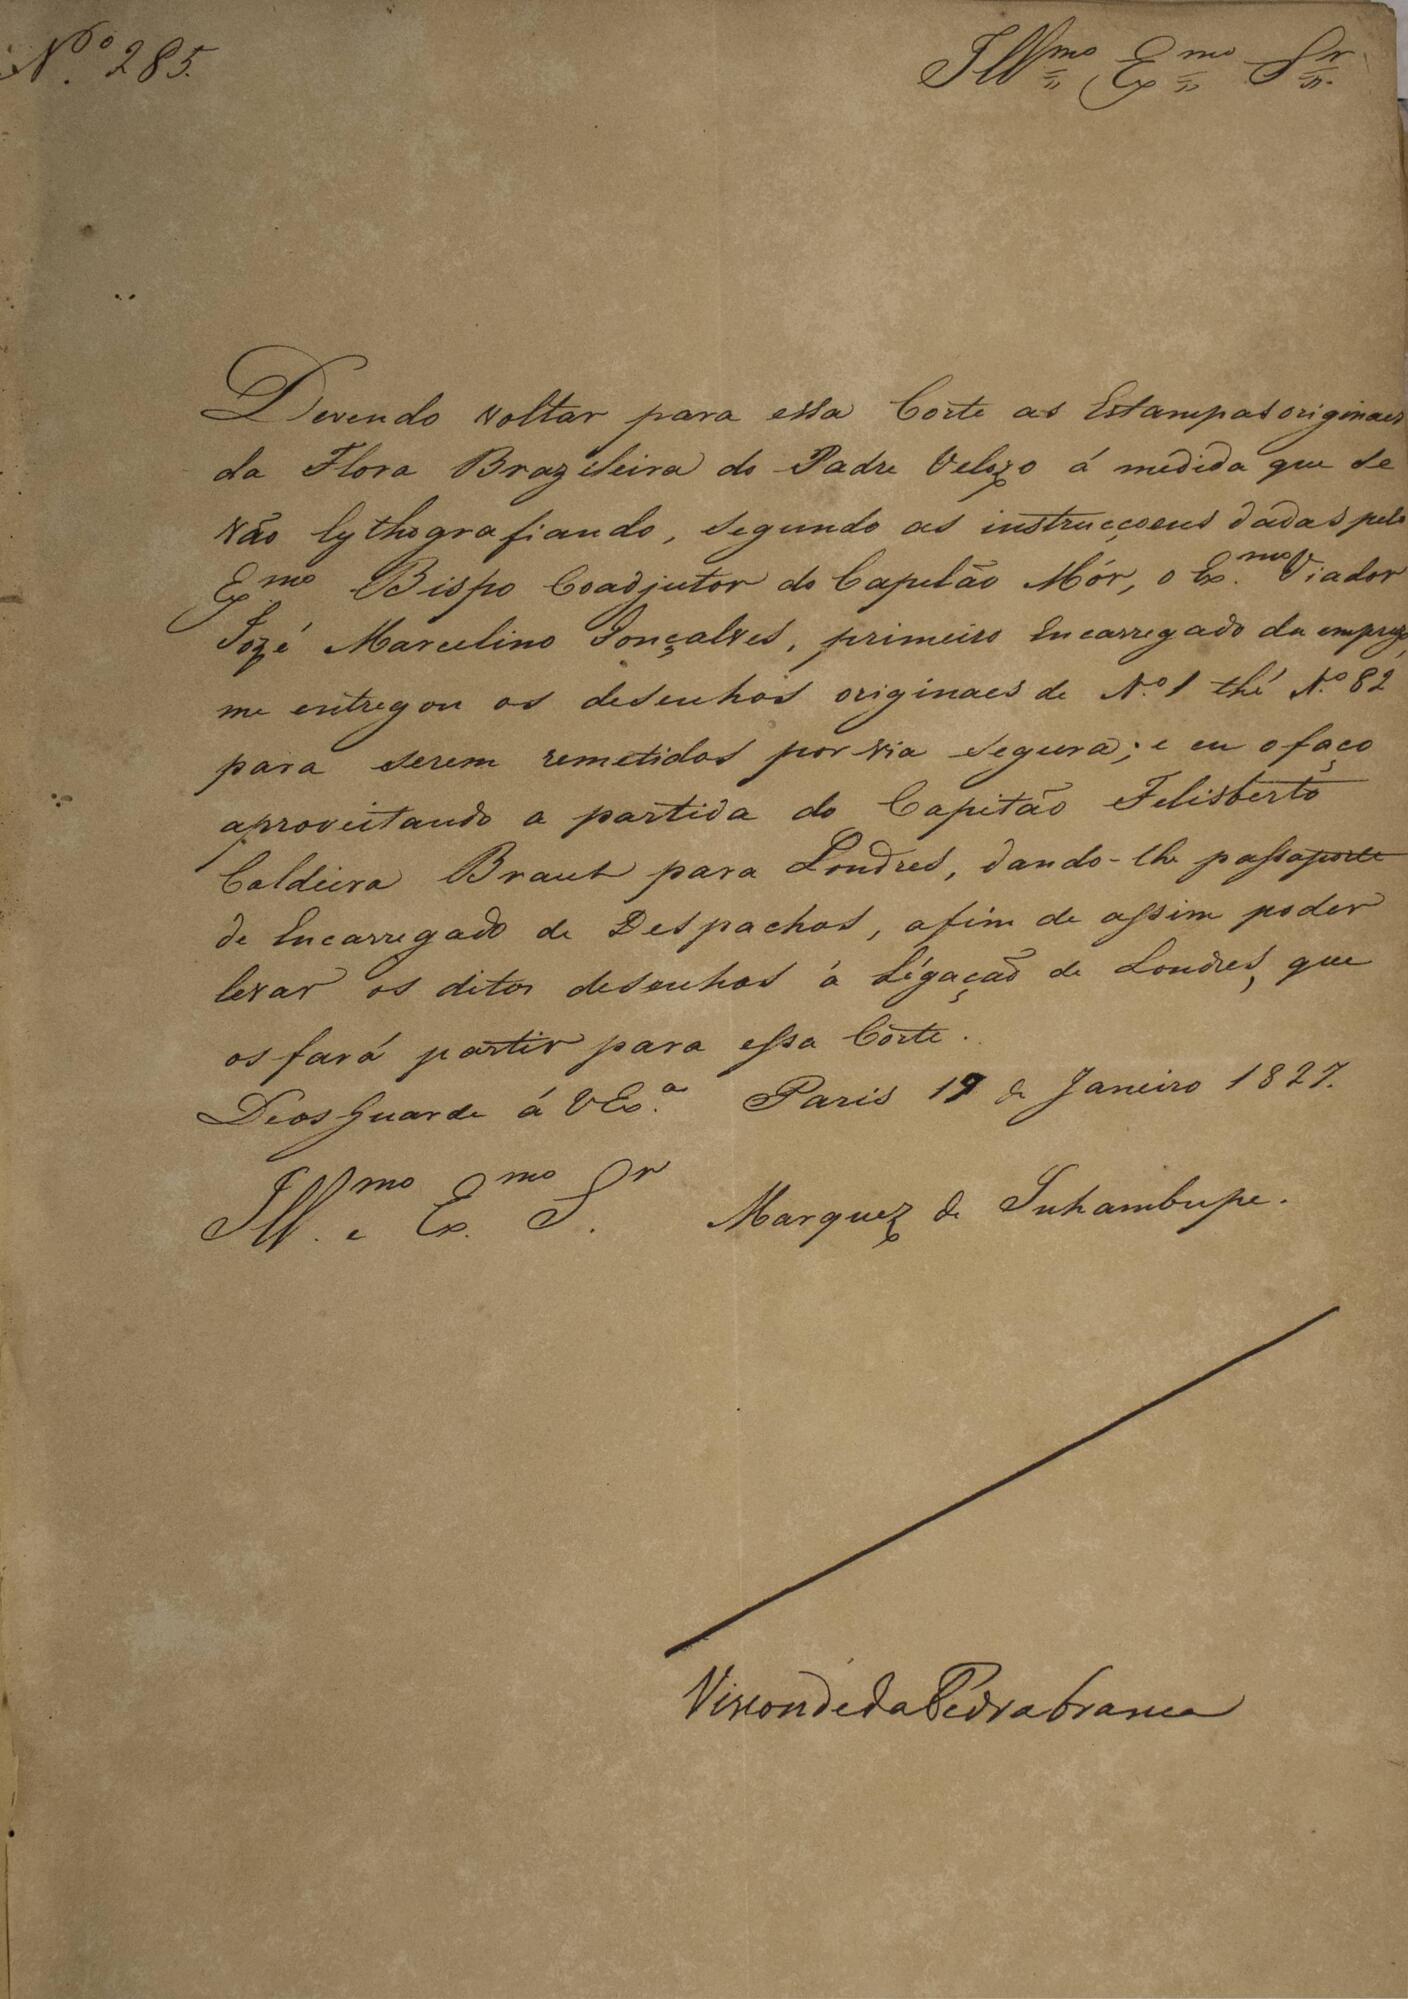 N.º 285.
Illmo Exmo Sr.
Devendo voltar para essa Corte as Estampas originaes
da Flora Brazileira do Padre Velozo á medida que se
vão lythografiando, segundo as instrucçoens dadas pelo
Exmo Bispo Coadjutor do Capelão Mór, o Ex.mo Viador
Jozé Marcelino Gonçalves, primeiro Encarregado da empreza,
me entregou os desenhos originaes de N.º 1 thé N.º 82
para serem remetidos por via segura; e eu o faço
aproveitando a partida do Capitão Felisberto
Caldeira Brant para Londres, dando-lhe passaporte
de Encarregado de Despachos, afim de assim poder
levar os ditos desenhos á Légação de Londres, que
os fará partir para essa Côrte.
Deos Guarde á VEx.ª Paris 19 de Janeiro 1827.
Illmo. e Exmo. Sr. Marquez de Inhambupe.
Visconde da Pedra branca